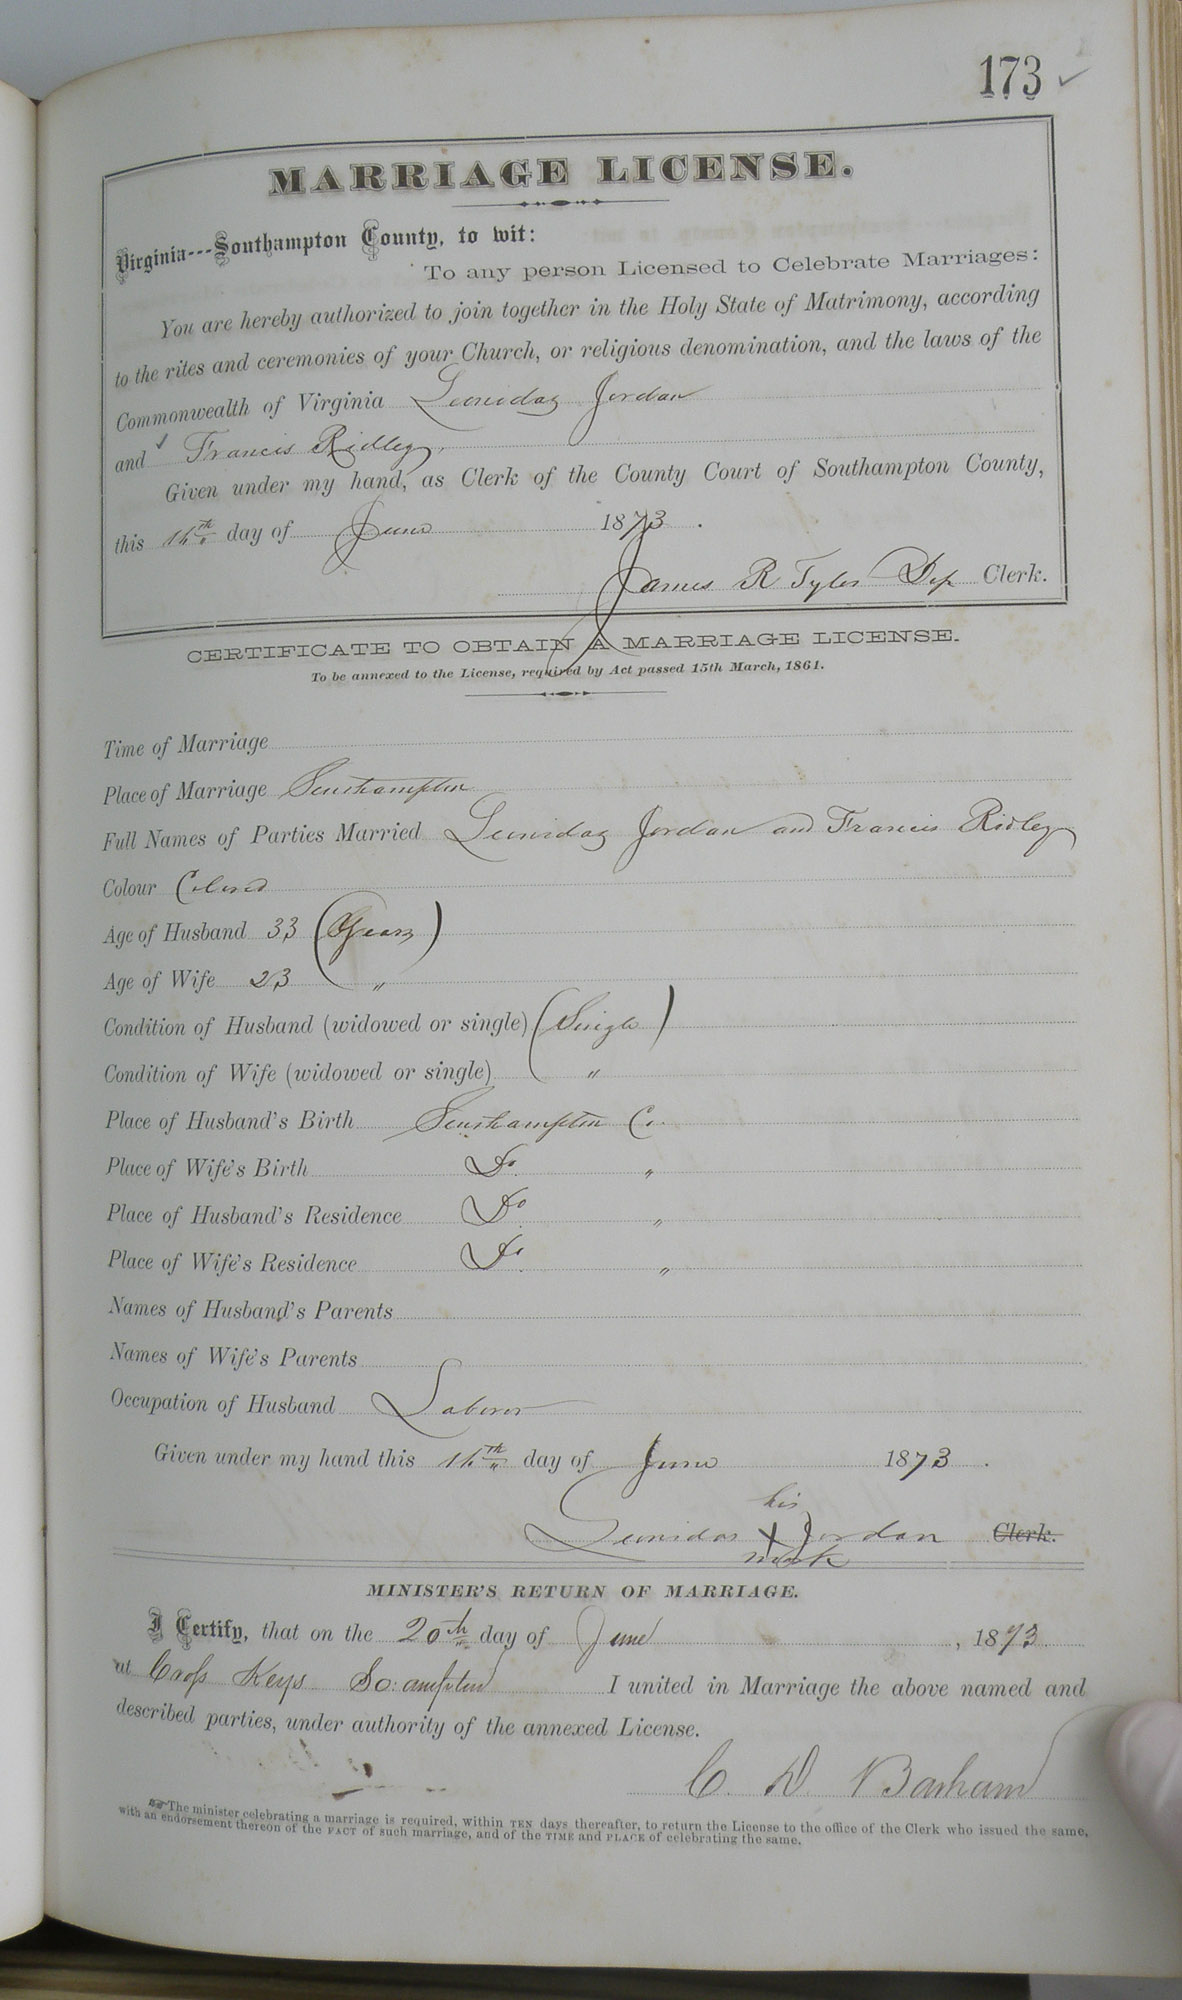 173 ✓
MARRIAGE LICENSE.
Virginia---Southampton County, to wit:
To any person Licensed to Celebrate Marriages:
You are hereby authorized to join together in the Holy State of Matrimony, according
to the rites and ceremonies of your Church, or religious denomination, and the laws of the
Commonwealth of Virginia Leonidas Jordan
and ✓ Francis Ridley,
Given under my hand, as Clerk of the County Court of Southampton County,
this 16th day of June 1873.
James R Tyler Dep Clerk.
CERTIFICATE TO OBTAIN A MARRIAGE LICENSE.
To be annexed to the License, required by Act passed 15th March, 1861.
Time of Marriage
Place of Marriage Southampton
Full Names of Parties Married Leonidas Jordan and Francis Ridley
Colour Colored
Age of Husband 33 (Years)
Age of Wife 23 "
Condition of Husband (widowed or single) (Single)
Condition of Wife (widowed or single) "
Place of Husband's Birth Southampton Co.
Place of Wife's Birth Do. "
Place of Husband's Residence Do. "
Place of Wife's Residence Do. "
Names of Husband's Parents
Names of Wife's Parents
Occupation of Husband Laborer
Given under my hand this 16th day of June 1873.
his
Leonidas X Jordan Clerk.
mark
MINISTER'S RETURN OF MARRIAGE.
I Certify, that on the 20th day of June, 1873
at Cross Keys So:ampton I united in Marriage the above named and
described parties, under authority of the annexed License.
C. D. Barham
The minister celebrating a marriage is required, within TEN days thereafter, to return the License to the office of the Clerk who issued the same,
with an endorsement thereon of the FACT of such marriage, and of the TIME and PLACE of celebrating the same.